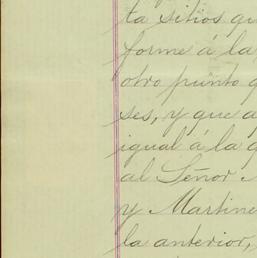 ta sitios qu
forme á la
otro punto q
ses, y que a
igual á la q
al Señor
y Martine
la anterior,